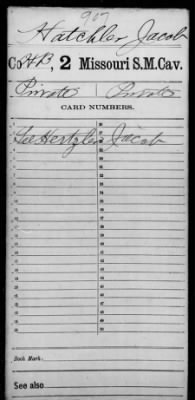 907
Hatchler Jacob
Co. H.B, 2 Missouri S.M. Cav.
Private Private
CARD NUMBERS.
See Hertzler Jacob
Book Mark:
See also